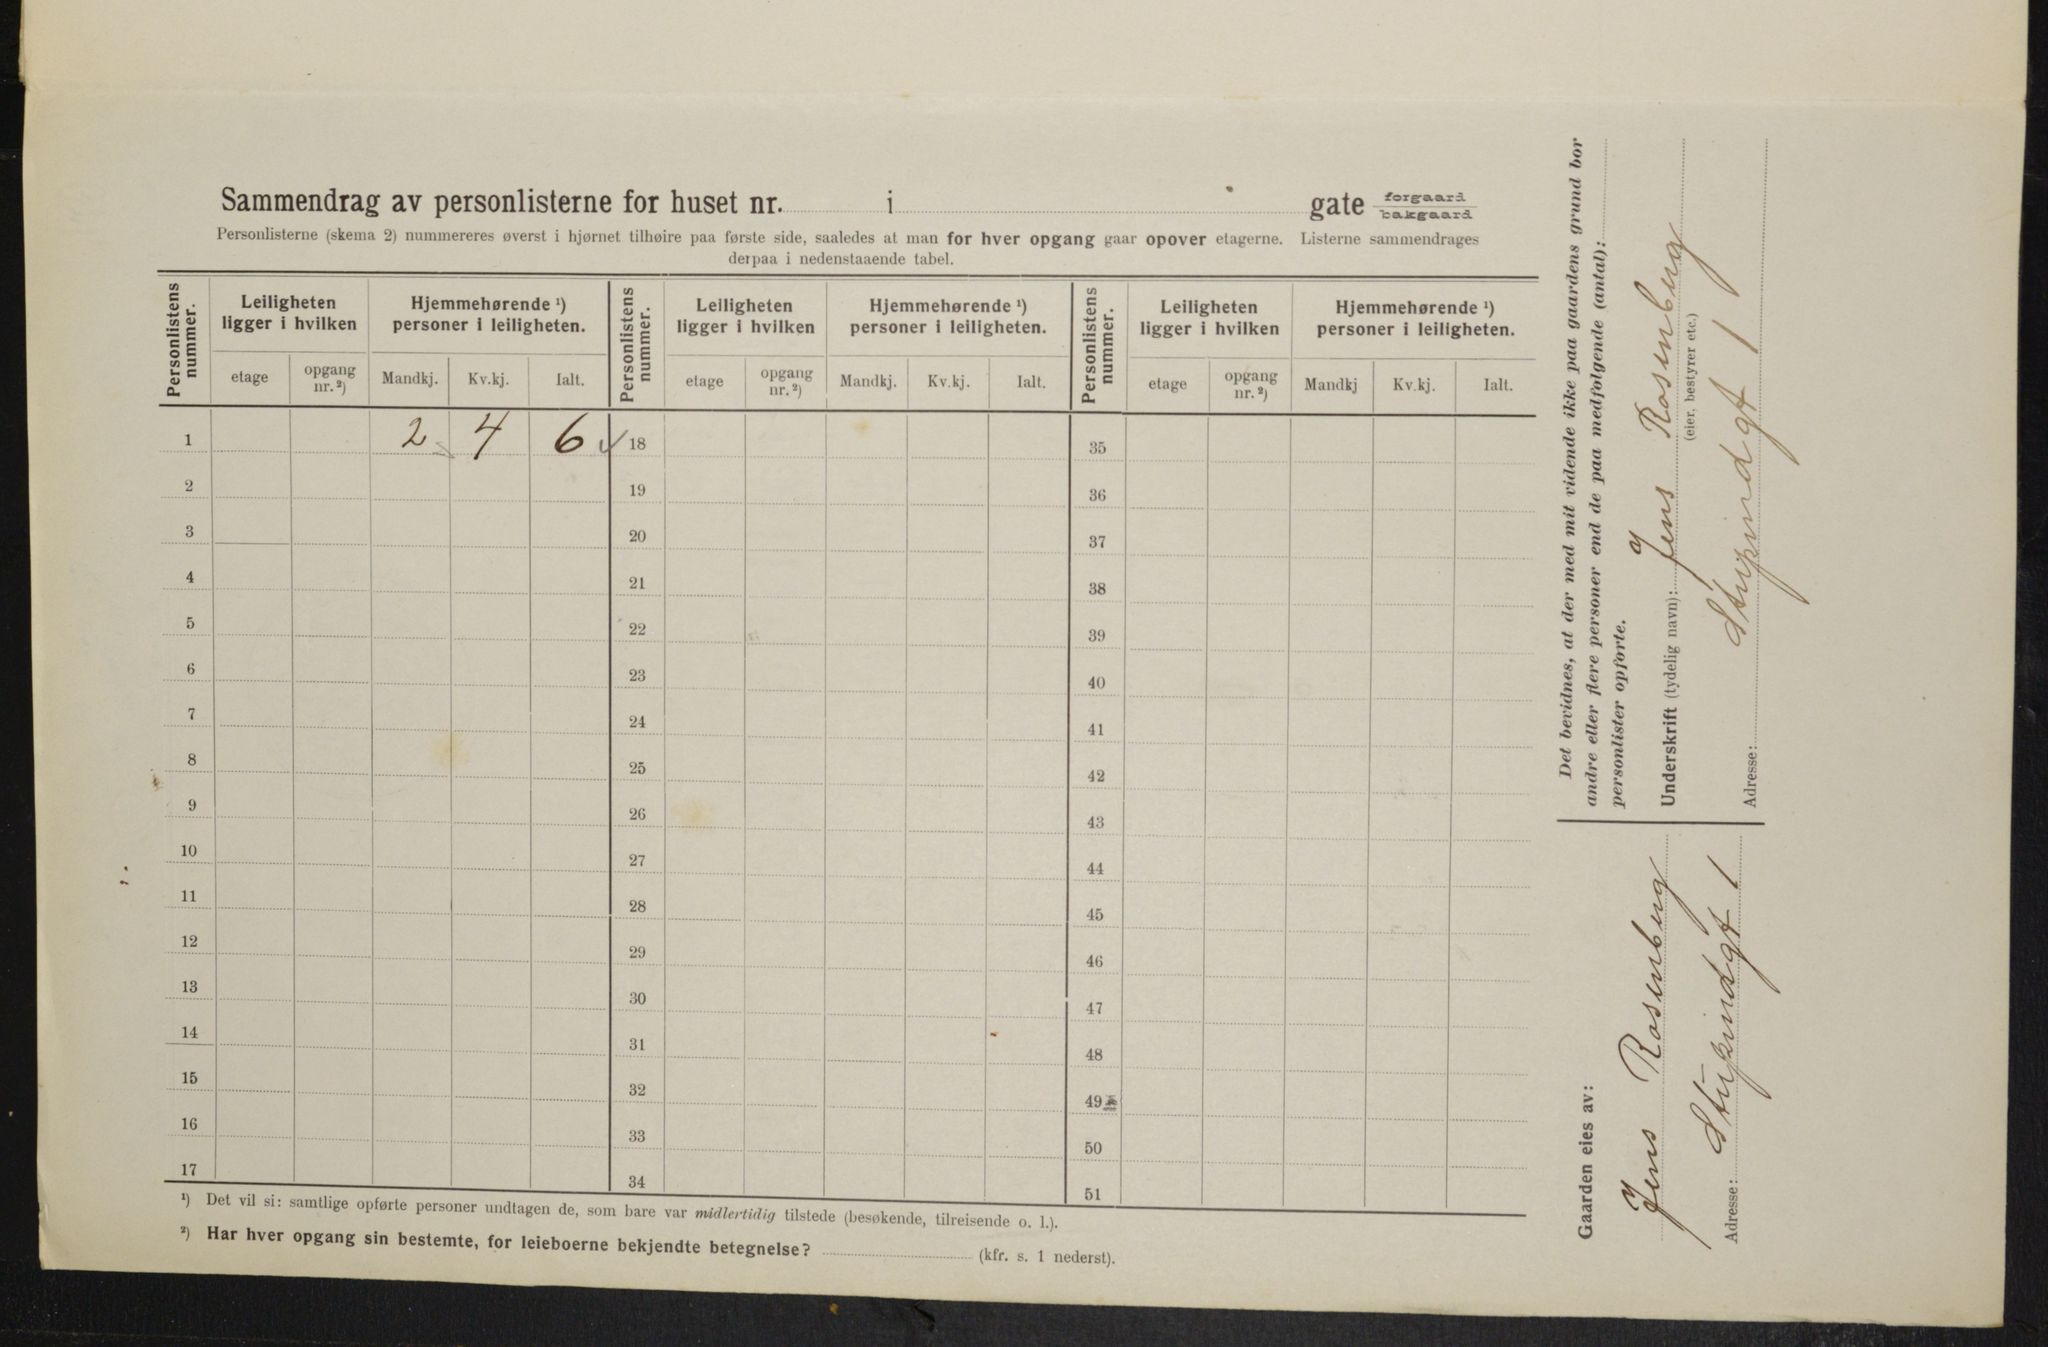 Sammendrag av personlisterne for huset nr. i gate forgaard
bakgaard
Personlisterne (skema 2) nummereres øverst i hjørnet tilhøire paa første side, saaledes at man for hver opgang gaar opover etagerne. Listerne sammendrages
derpaa i nedenstaaende tabel.
Personlistens nummer. Leiligheten ligger i hvilken Hjemmehørende ¹) personer i leiligheten. Personlistens nummer. Leiligheten ligger i hvilken Hjemmehørende ¹) personer i leiligheten. Personlistens nummer. Leiligheten ligger i hvilken Hjemmehørende ¹) personer i leiligheten.
etage opgang nr. ²) Mandkj. Kv.kj. Ialt. etage opgang nr. ²) Mandkj. Kv.kj. Ialt. etage opgang nr. ²) Mandkj Kv.kj. Ialt.
1 2 4 6 ✓ 18 35
2 19 36
3 20 37
4 21 38
5 22 39
6 23 40
7 24 41
8 25 42
9 26 43
10 27 44
11 28 45
12 29 46
13 30 47
14 31 48
15 32 49
16 33 50
17 34 51
¹) Det vil si: samtlige opførte personer undtagen de, som bare var midlertidig tilstede (besøkende, tilreisende o. l.).
²) Har hver opgang sin bestemte, for leieboerne bekjendte betegnelse? (kfr. s. 1 nederst).
Det bevidnes, at der med mit vidende ikke paa gaardens grund bor
andre eller flere personer end de paa medfølgende (antal):
personlister opførte.
Underskrift (tydelig navn): Jens Rosenberg
(eier, bestyrer etc.)
Adresse: Stupindgt 1
Gaarden eies av:
Jens Rosenberg
Adresse: Stupindgt 1